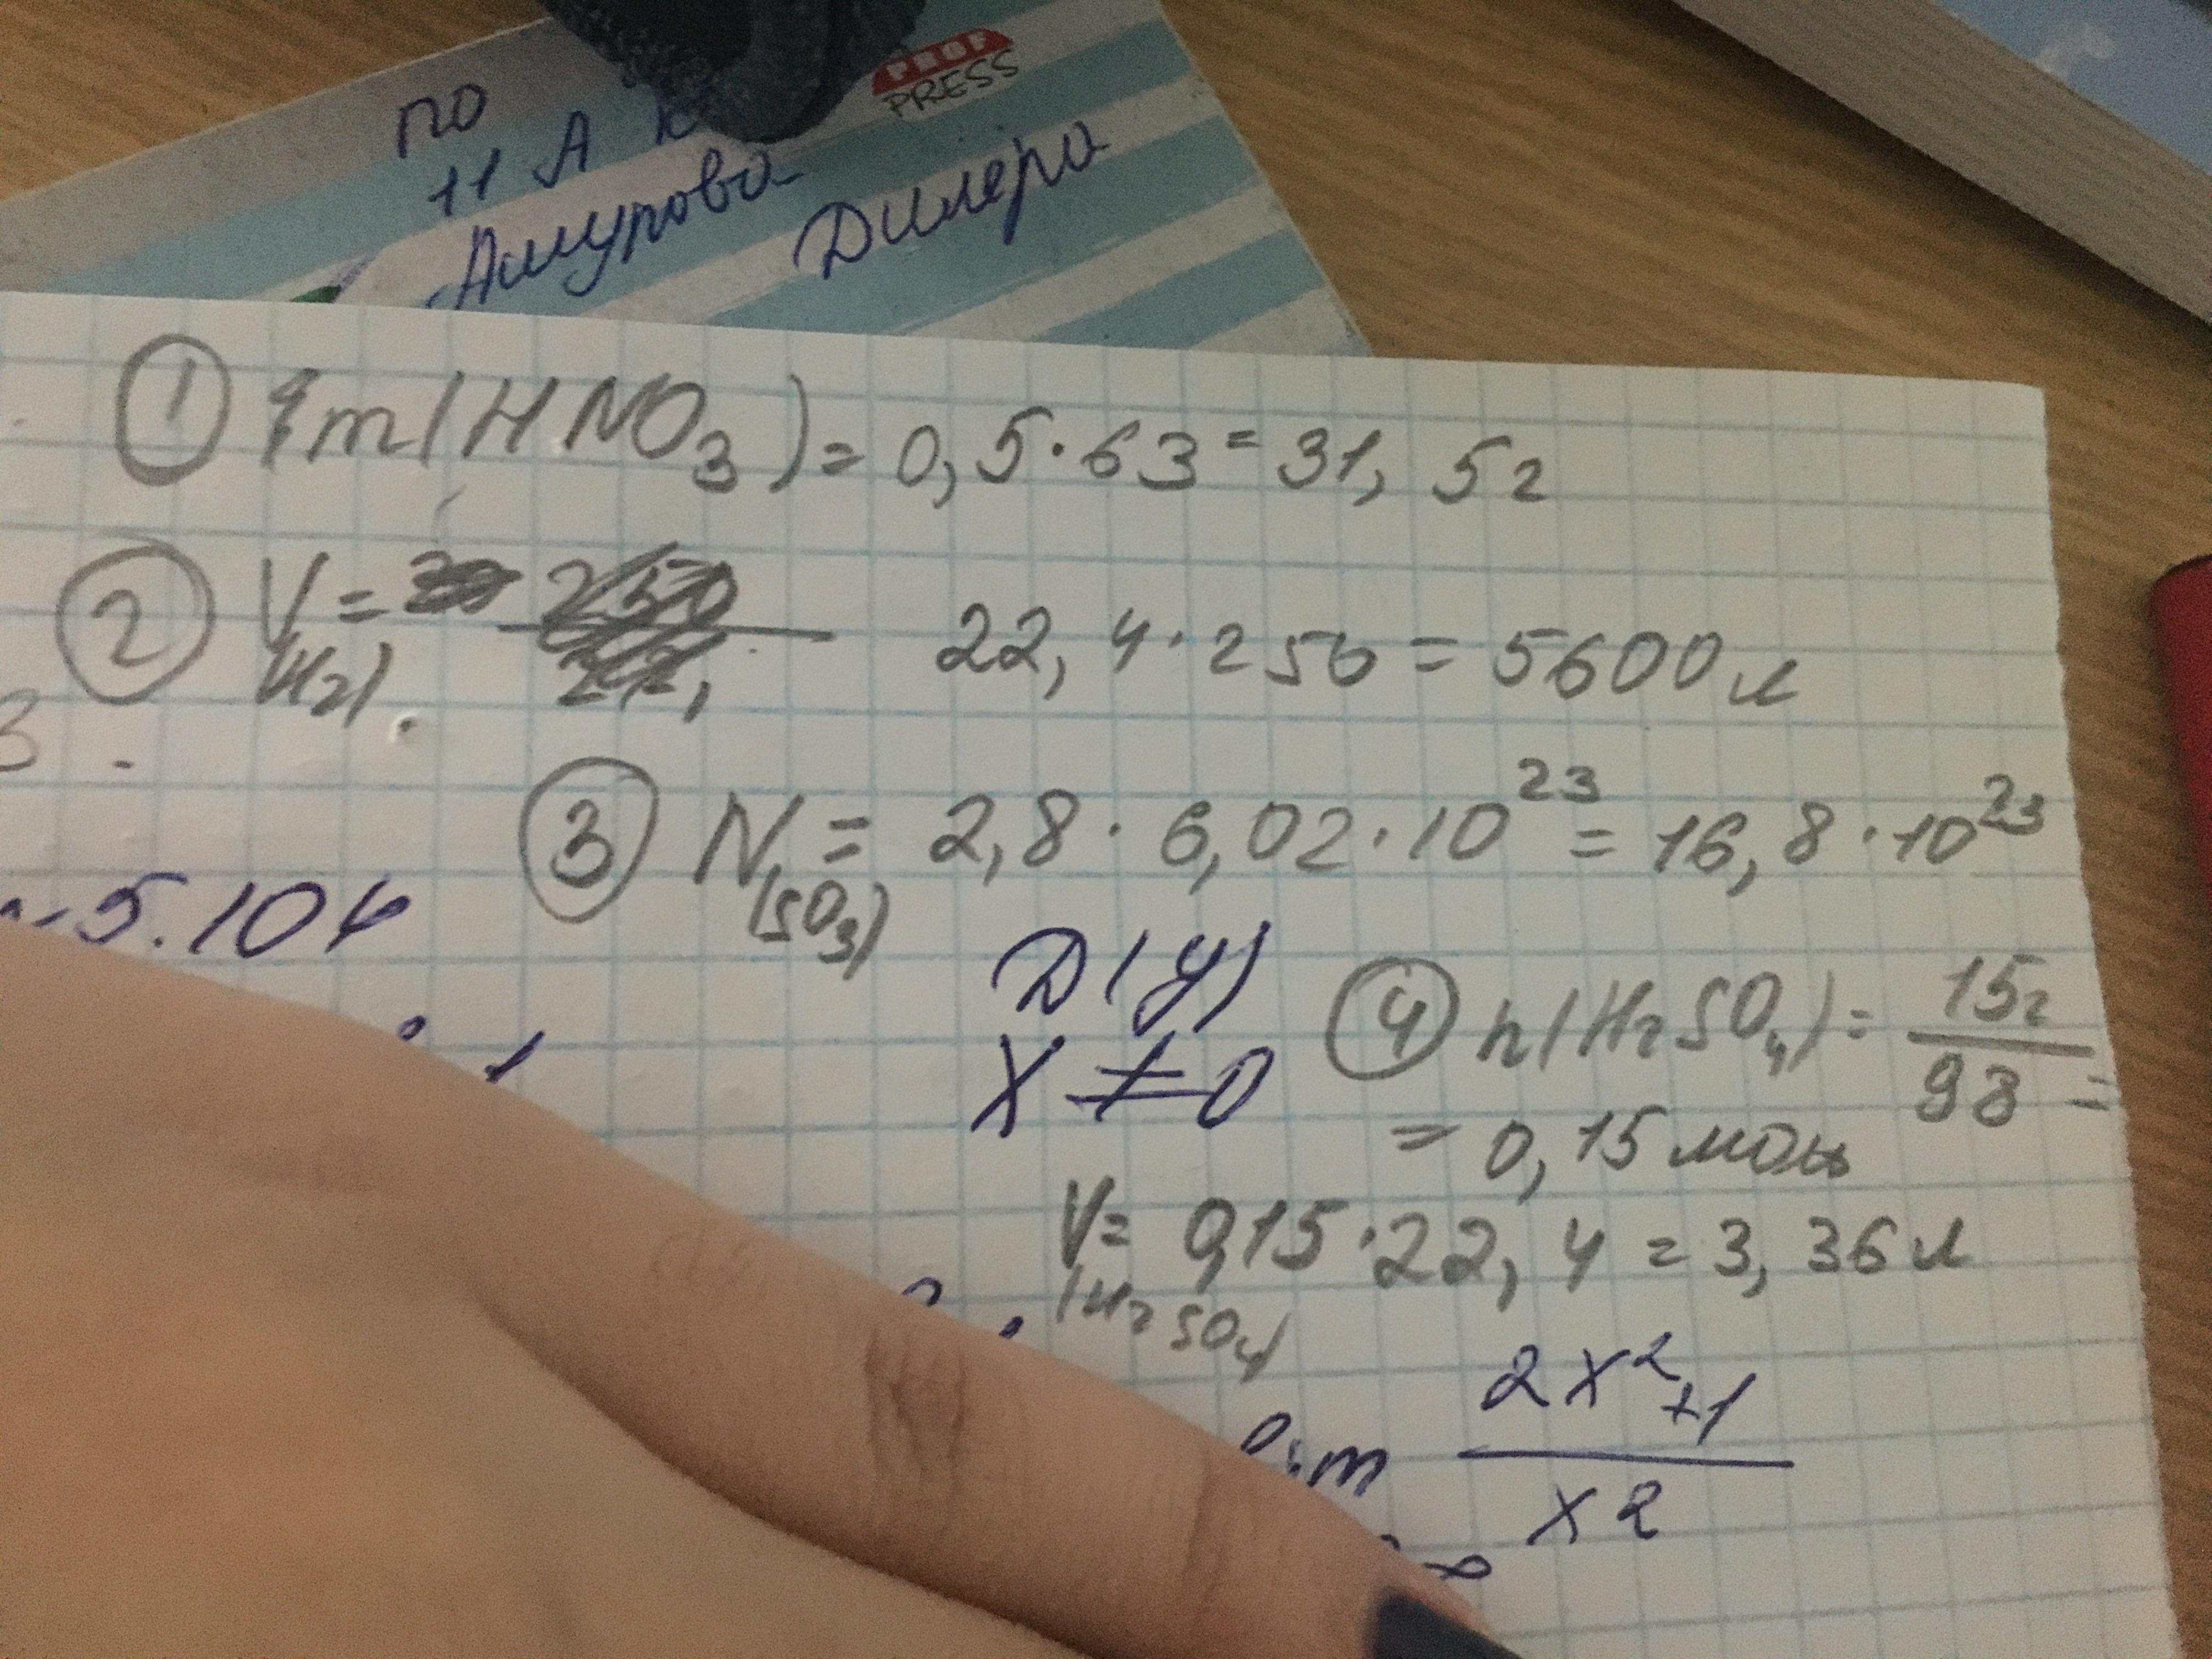 PROF
PRESS
по
11 А
Амурова Дилера
① m(HNO₃) = 0,5·63 = 31,5г
② V(H₂) = 22,4·250 = 5600 л
③ N(SO₃) = 2,8·6,02·10²³ = 16,8·10²³
5.104
D(y)
X ≠ 0
④ n(H₂SO₄) = 15г/98 =
= 0,15 моль
V(H₂SO₄) = 0,15·22,4 = 3,36 л
2x²+1
x2